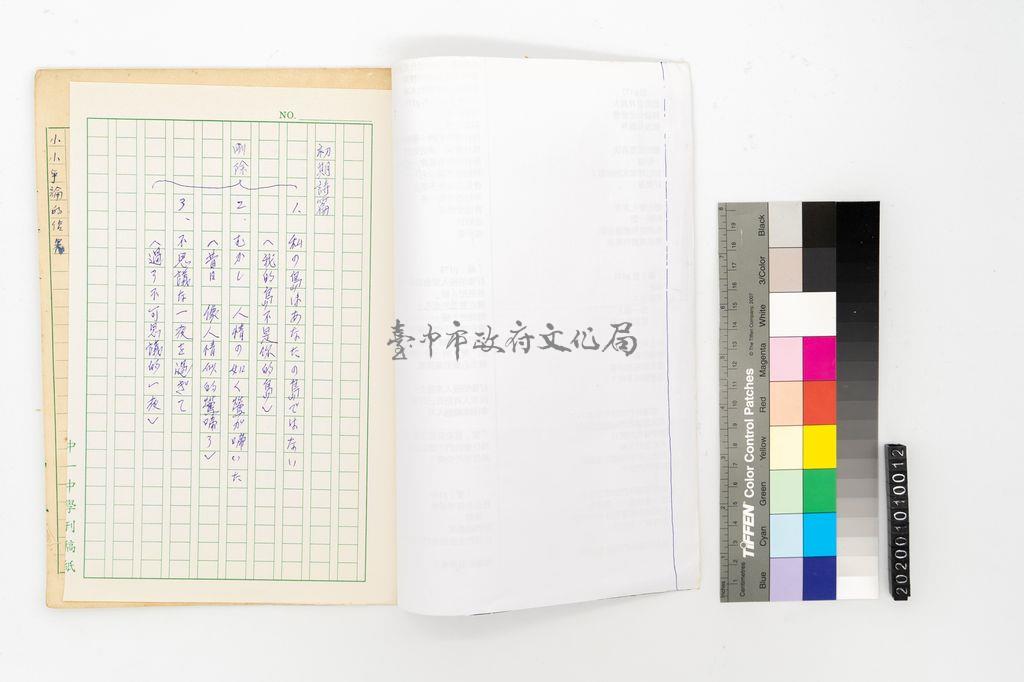 NO.
初期詩篇
1. 私の島はあなたの島ではない
〈我的島不是你的島〉
刪除
2. むかし 人情の如く鶯が啼いた
〈昔日 像人情似的鶯啼了〉
3、不思議な一夜を過ぎて
〈過了不可思議的一夜〉
中一中學刊稿紙
小小爭論的
臺中市政府文化局
Inches
Centimetres
TIFFEN Color Control Patches
© The Tiffen Company, 2007
Blue
Cyan
Green
Yellow
Red
Magenta
White
3/Color
Black
2020010100 12